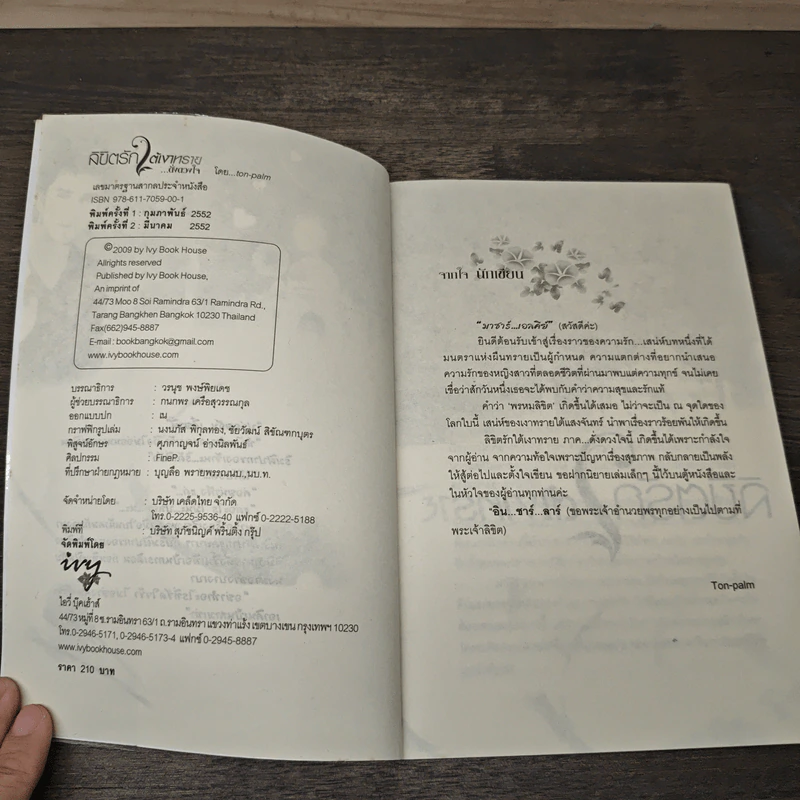 ลิขิตรักใต้เงาทราย
...ดั่งดวงใจ โดย...ton-palm
เลขมาตรฐานสากลประจำหนังสือ
ISBN 978-611-7059-00-1
พิมพ์ครั้งที่ 1 : กุมภาพันธ์ 2552
พิมพ์ครั้งที่ 2 : มีนาคม 2552
©2009 by Ivy Book House
Allrights reserved
Published by Ivy Book House,
An imprint of
44/73 Moo 8 Soi Ramindra 63/1 Ramindra Rd.,
Tarang Bangkhen Bangkok 10230 Thailand
Fax(662)945-8887
E-mail : bookbangkok@gmail.com
www.ivybookhouse.com
บรรณาธิการ : วรนุช พงษ์พิยเดช
ผู้ช่วยบรรณาธิการ : กนกพร เครือสุวรรณกุล
ออกแบบปก : ณ
กราฟฟิกรูปเล่ม : นงนภัส พิกุลทอง, ชัยวัฒน์ สีขัณฑกบุตร
พิสูจน์อักษร : ศุภกาญจน์ อ่างนิลพันธ์
ศิลปกรรม : FineP.
ที่ปรึกษาฝ่ายกฎหมาย : บุญลือ พรายพรรณนบ.,นบ.ท.
จัดจำหน่ายโดย : บริษัท เคล็ดไทย จำกัด
โทร.0-2225-9536-40 แฟกซ์ 0-2222-5188
พิมพ์ที่ : บริษัท สุภัชนิญค์ พริ้นติ้ง กรุ๊ป
จัดพิมพ์โดย
ivy
ไอวี่ บุ๊คเฮ้าส์
44/73 หมู่ที่ 8 ซ.รามอินทรา 63/1 ถ.รามอินทรา แขวงท่าแร้ง เขตบางเขน กรุงเทพฯ 10230
โทร.0-2946-5171, 0-2946-5173-4 แฟกซ์ 0-2945-8887
www.ivybookhouse.com
ราคา 210 บาท
จากใจ นักเขียน
"มาซาร์...เอลคิฮ์" (สวัสดีค่ะ)
ยินดีต้อนรับเข้าสู่เรื่องราวของความรัก...เสน่ห์บทหนึ่งที่ได้
มนตราแห่งผืนทรายเป็นผู้กำหนด ความแตกต่างที่อยากนำเสนอ
ความรักของหญิงสาวที่ตลอดชีวิตที่ผ่านมาพบแต่ความทุกข์ จนไม่เคย
เชื่อว่าสักวันหนึ่งเธอจะได้พบกับคำว่าความสุขและรักแท้
คำว่า 'พรหมลิขิต' เกิดขึ้นได้เสมอ ไม่ว่าจะเป็น ณ จุดใดของ
โลกใบนี้ เสน่ห์ของเงาทรายใต้แสงจันทร์ นำพาเรื่องราวร้อยพันให้เกิดขึ้น
ลิขิตรักใต้เงาทราย ภาค...ดั่งดวงใจนี้ เกิดขึ้นได้เพราะกำลังใจ
จากผู้อ่าน จากความท้อใจเพราะปัญหาเรื่องสุขภาพ กลับกลายเป็นพลัง
ให้สู้ต่อไปและตั้งใจเขียน ขอฝากนิยายเล่มเล็กๆ นี้ไว้บนตู้หนังสือและ
ในหัวใจของผู้อ่านทุกท่านค่ะ
"อิน...ชาร์...ลาร์ (ขอพระเจ้าอำนวยพรทุกอย่างเป็นไปตามที่
พระเจ้าลิขิต)
Ton-palm